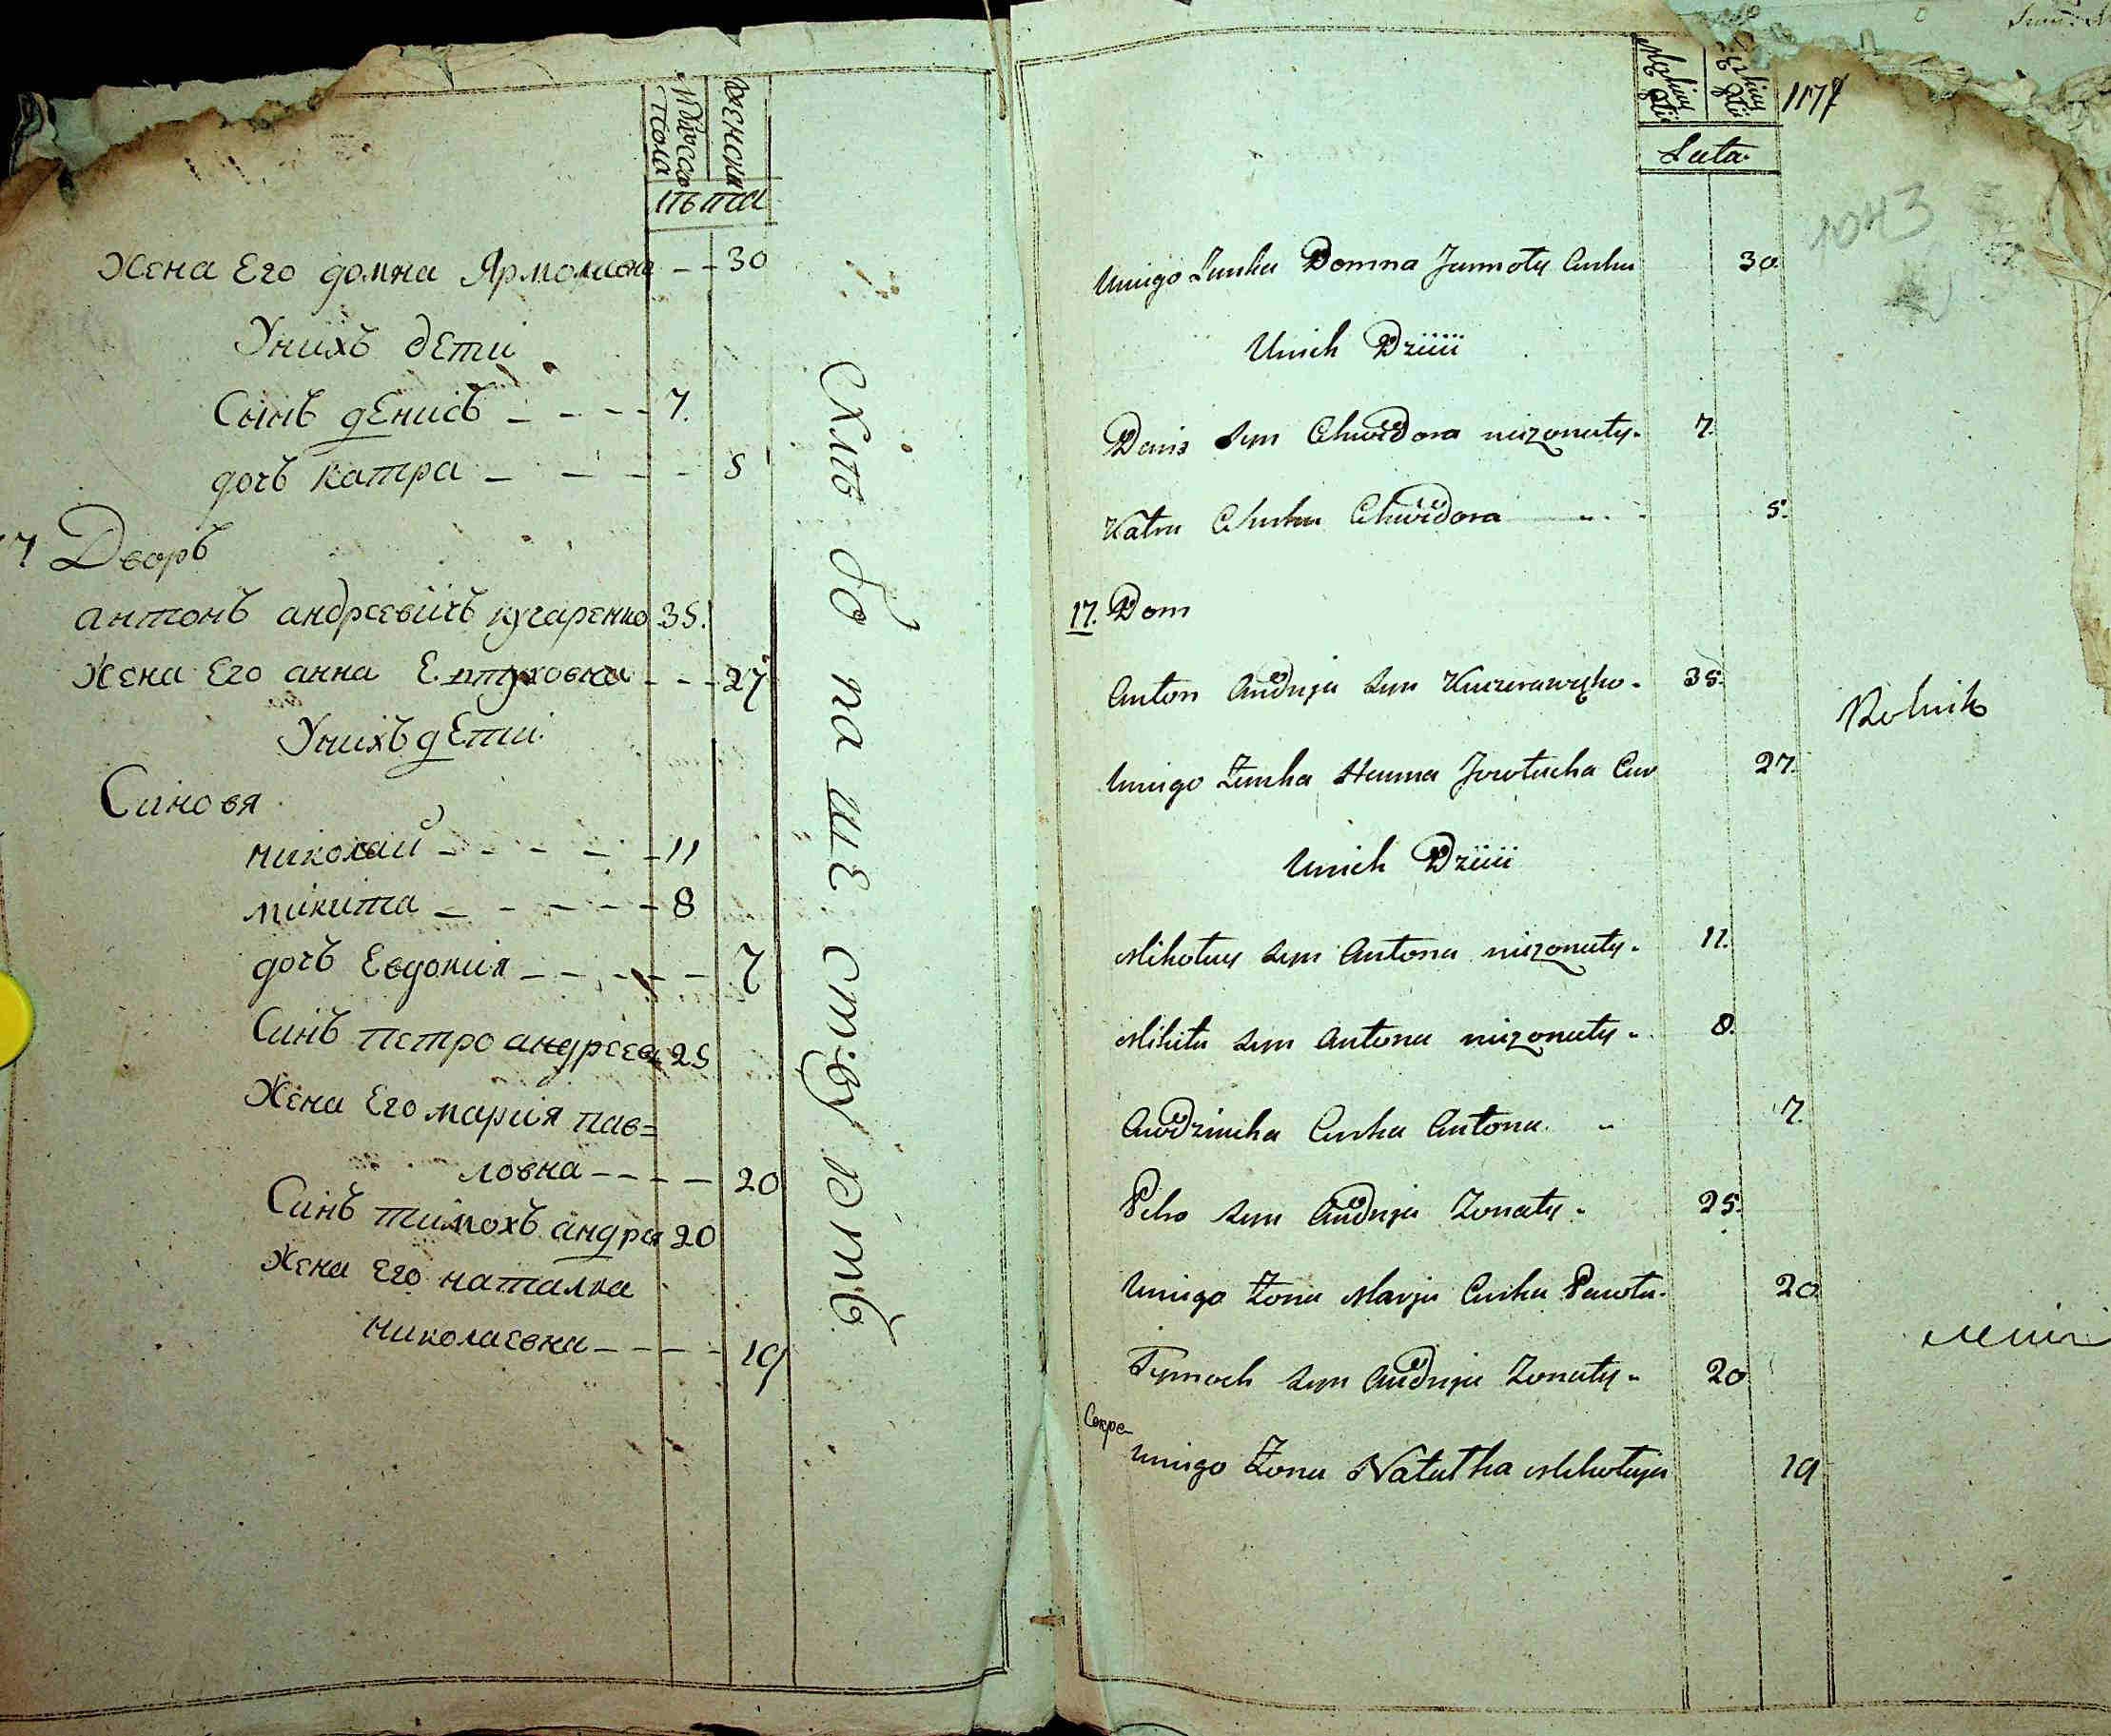 Мужеска
пола
женска
лѣта
Жена Его домна Ярмолиона - - 30
Унихъ дети
Сынъ дЕнисъ - - - - 7.
дочъ катра - - - - 5
17 Дворъ
антонъ андреевичъ кучаренко 35.
жена Его анна Евтуховна - - - 27
Унихъ дЕти.
Синовя
николай - - - - - 11
микита - - - - - 8
дочъ Евдокия - - - - - 7
Синъ петро андреевъ 25
Жена Его мария пав=
ловна - - - - 20
Синъ тимохъ андре 20
Жена Его наталка
николаевна - - - - 19
хлѣбопашествуютъ
1177
Lata.
1043
Uniego Zenka Domna Jarmoły Curka 30
Unich Dzieci
Denis Syn Chwedora nieżonaty. 7.
Katra Curka Chwedora 5.
17. Dom
Anton Andreja Syn 35.
Rolnik
Uniego Zenka Hanna Jewtucha Cur 27.
Unich Dzieci
Mikołay Syn Antona nieżonaty. 11.
Mikita Syn Antona nieżonaty. 8.
Awdziucha Curka Antona. 7.
Petro Syn Andreja Zonaty. 25.
Uniego Żona Marja Curka Pawła. 20
Tymoch Syn Andreja Zonaty. 20
Секре-
Uniego Żona Natałka Mikołaja 19